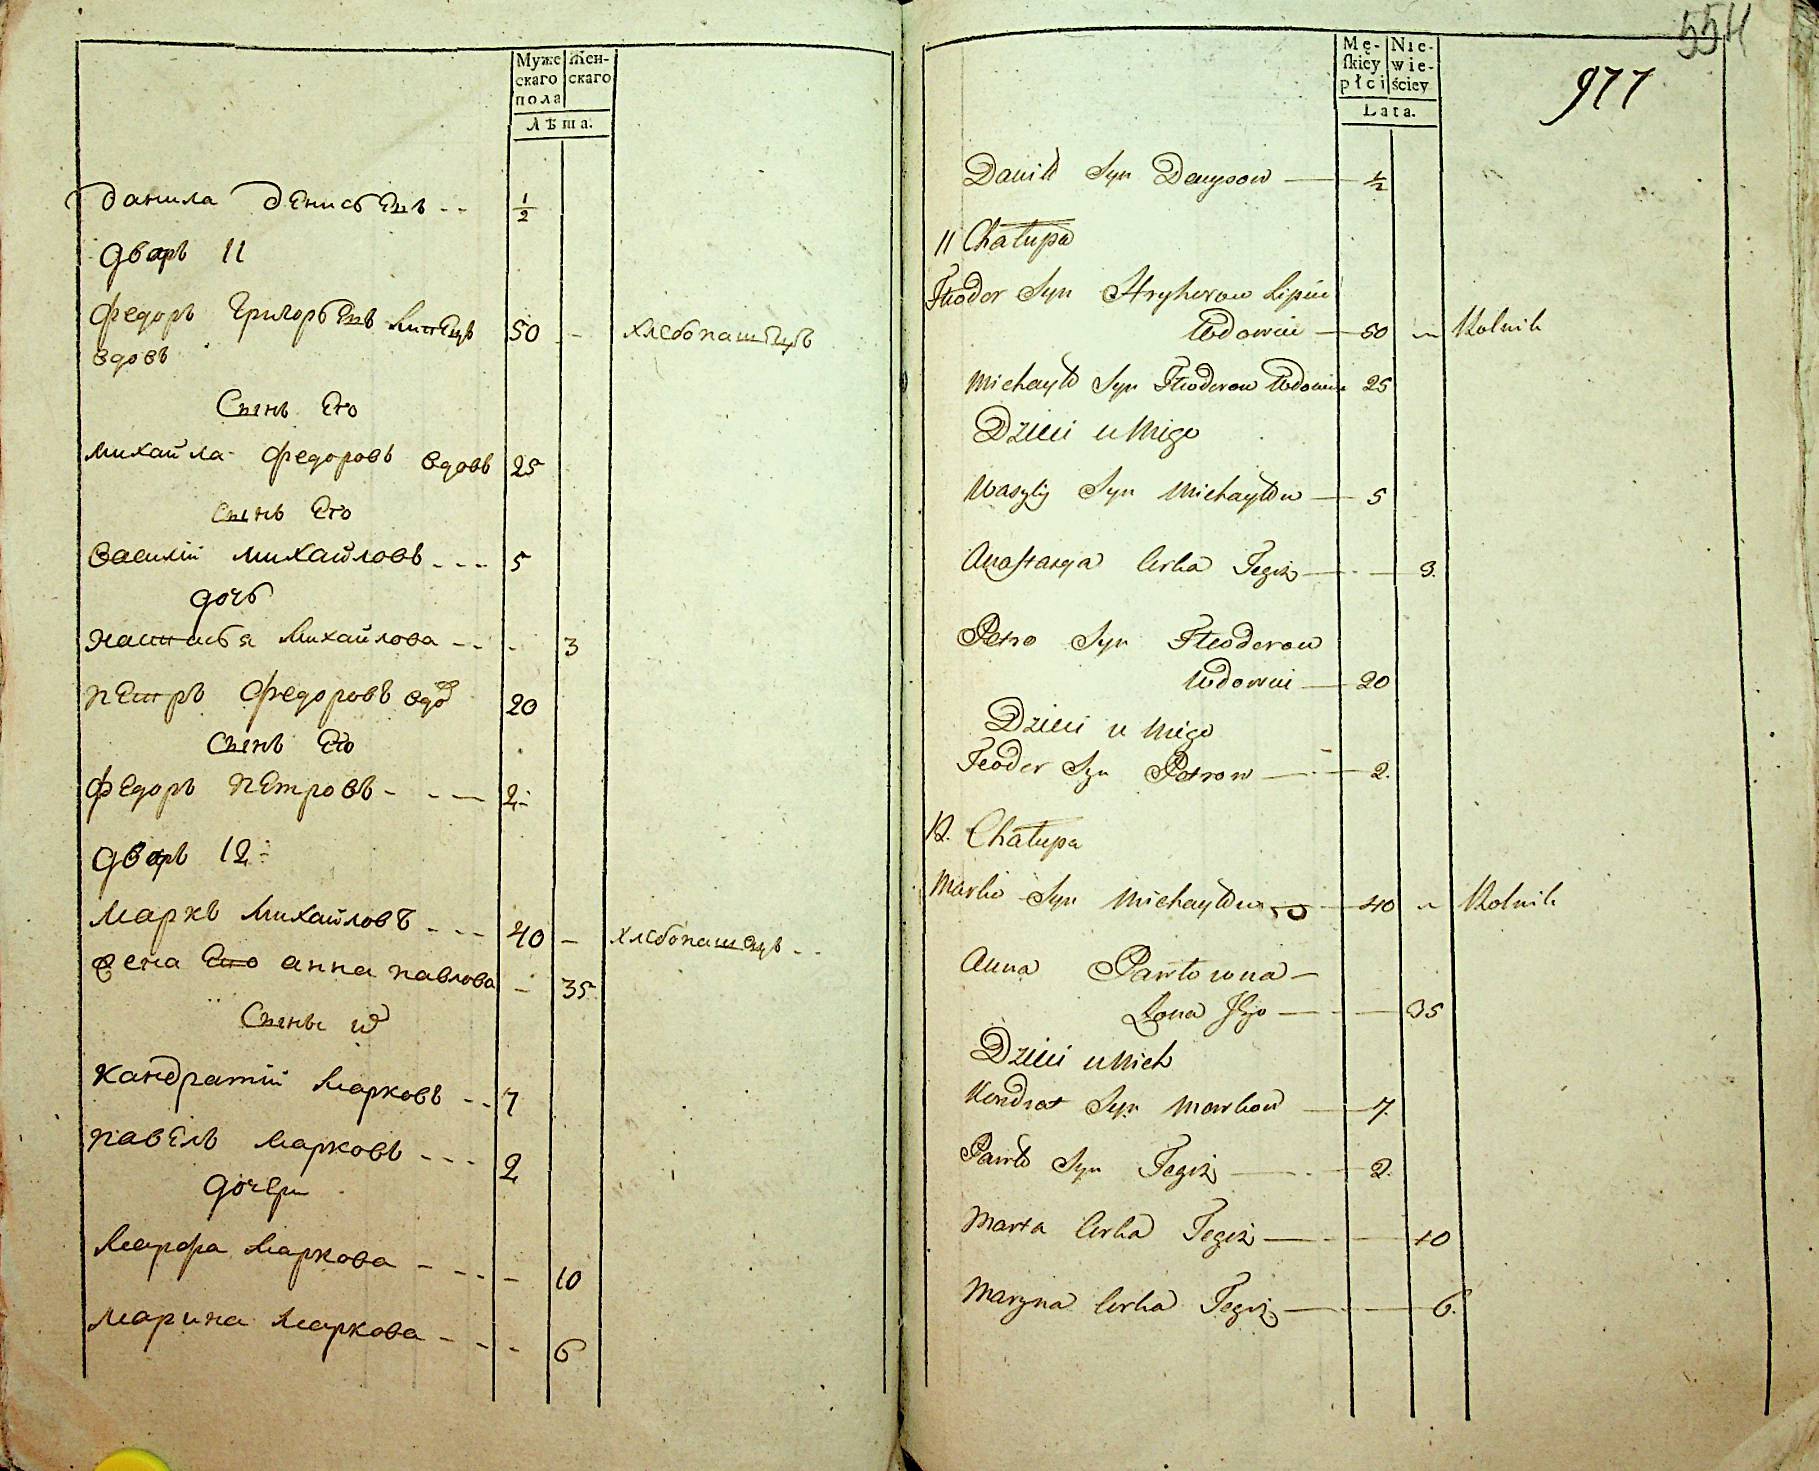 Муже
скаго
пола
Жен-
скаго
Лѣта.
Данила Денисьевъ
1/2
дворъ 11
Федоръ Григорьевъ
50 — хлебопашецъ
вдовъ
Сынъ Его
Михайла Федоровъ вдовъ 25
Сынъ Его
Василiй Михайловъ 5
дочь
Настасья Михайлова 3
Петръ Федоровъ вдов 20
Сынъ Его
Федоръ Петровъ - - — 2
дворъ 12
Маркъ Михайловъ - - - 40 — хлебопашецъ - -
Жена Его анна павлова — 35
Сыны их
Кандратiй Марковъ - - 7
Павелъ Марковъ - - - 2
дочери
Марфа Маркова - - - — 10
Марина Маркова - - - 6
Mę-
skiey
płci
Nie-
wie-
ściey
Lata.
554
977
Daniłł Syn Denysow — 1/2
11 Chałupa
Fteodor Syn Hryhorow Lipin
Wdowiec — 50 Rolnik
Michayło Syn Fteodorow Wdowiec 25
Dzieci u Niego
Wasyly Syn Michayłow — 5
Anastazya Corka Tegiż — 3.
Petro Syn Fteodorow
Wdowiec — 20
Dzieci u Niego
Feodor Syn Petrow — 2.
12. Chałupa
Marko Syn Michayłow — 40 Rolnik
Anna Pawłowna —
Żona Jego — 35
Dzieci u Nich
Kondrat Syn Markow — 7.
Pawło Syn Tegiż — 2.
Marta Corka Tegiż — 10
Maryna Corka Tegiż — 6.